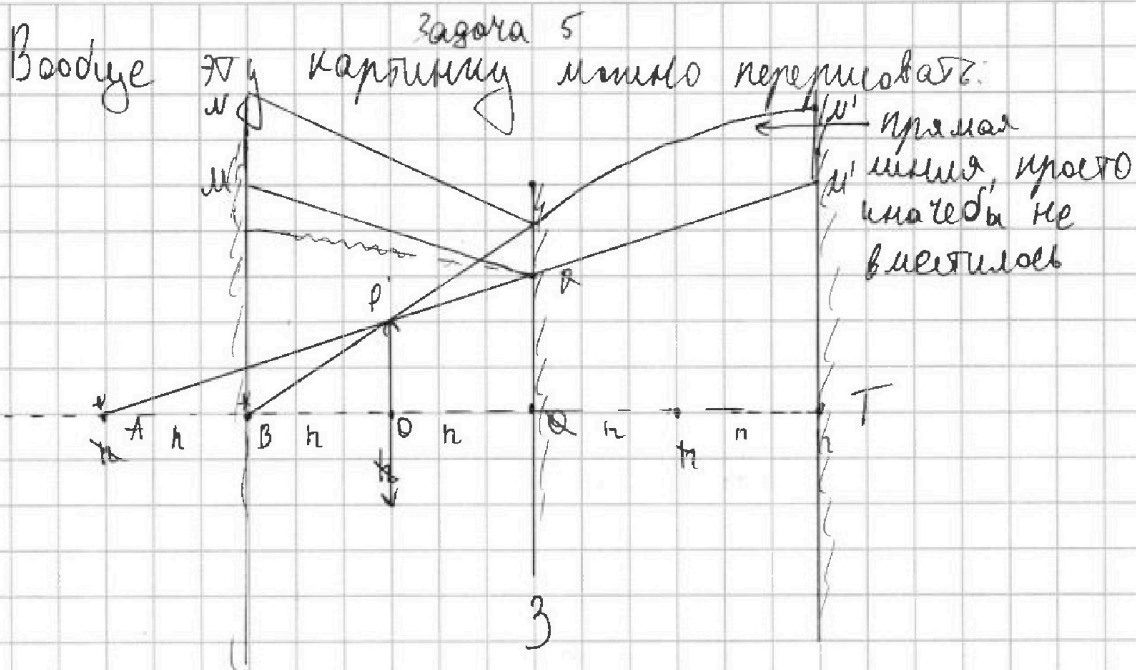 Задача 5
Вообще эту картинку можно перерисовать:
N
M'
прямая
M
M'
линия, просто
иначе бы не
вместилось
P
R
A h B h O h Q h h T
З